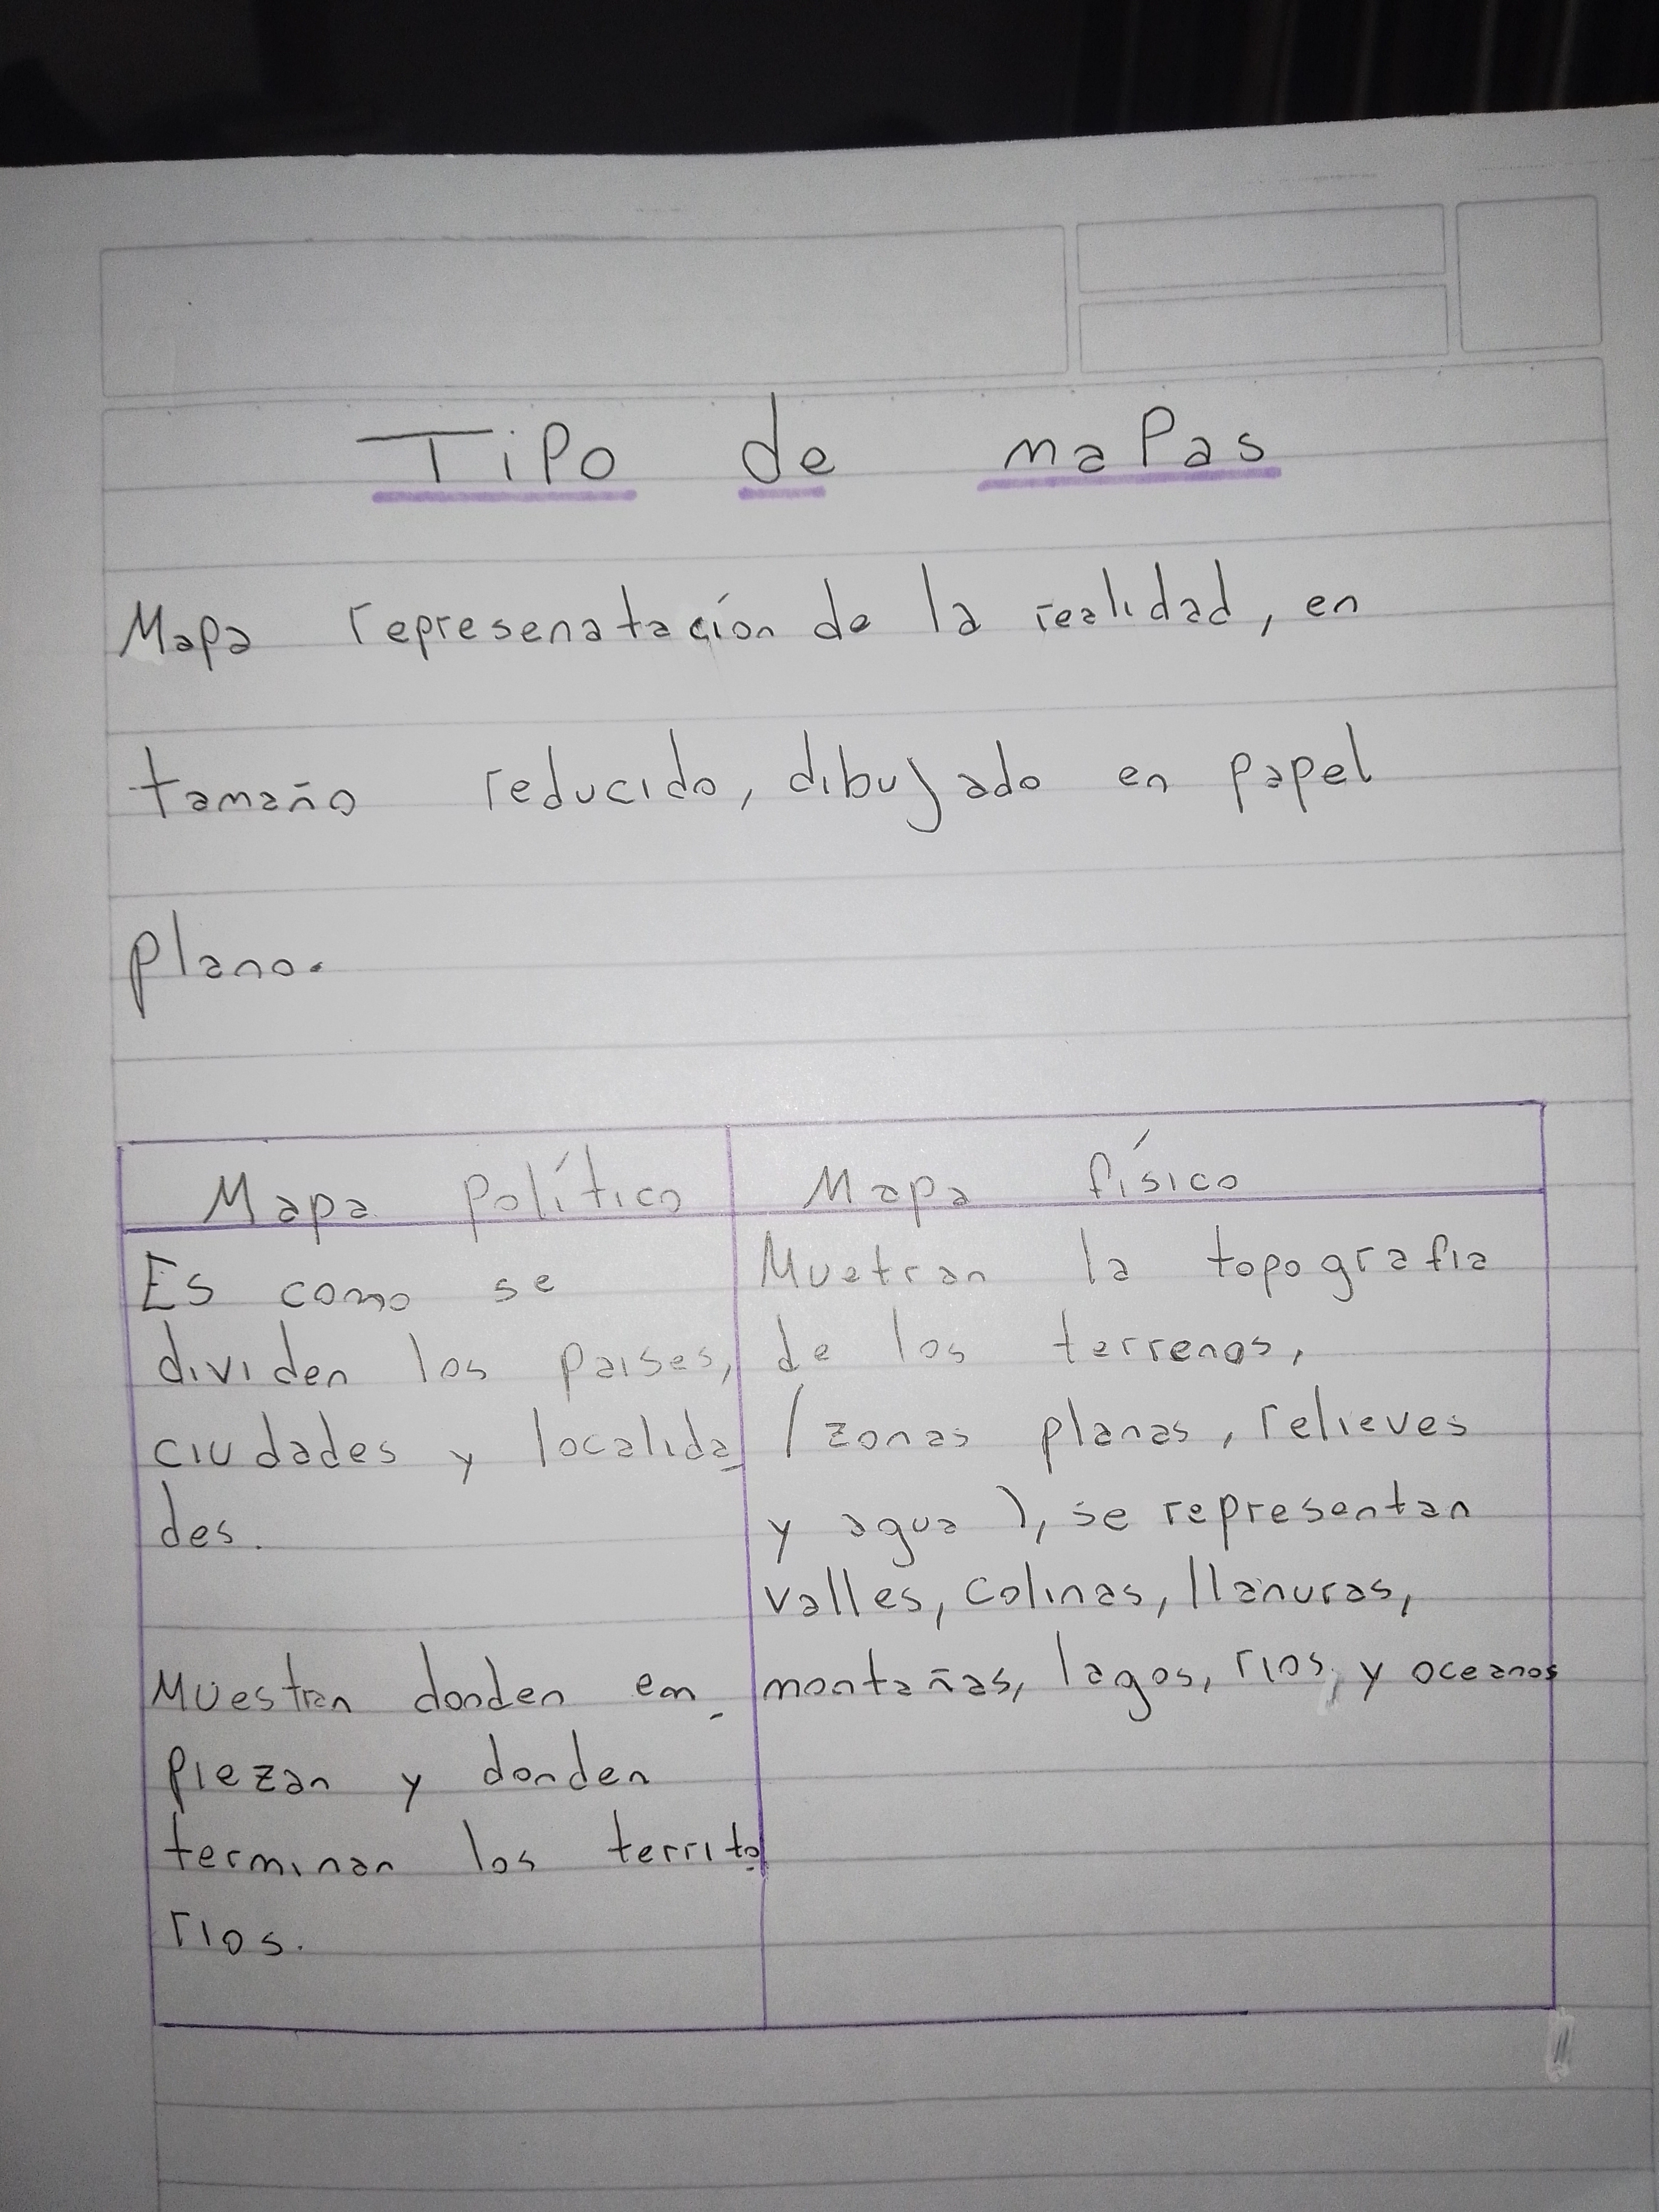 Tipo de mapas
Mapa represenatación de la realidad, en
tamaño reducido, dibujado en papel
plano.
Mapa político
Es como se
dividen los paises,
ciudades y localida_
des.
Muestran donden em_
piezan y donden
terminan los territo_
rios.
Mapa físico
Muetran la topografia
de los terrenos,
(zonas planas, relieves
y agua), se representan
valles, colinas, llanuras,
montañas, lagos, rios, y oceanos